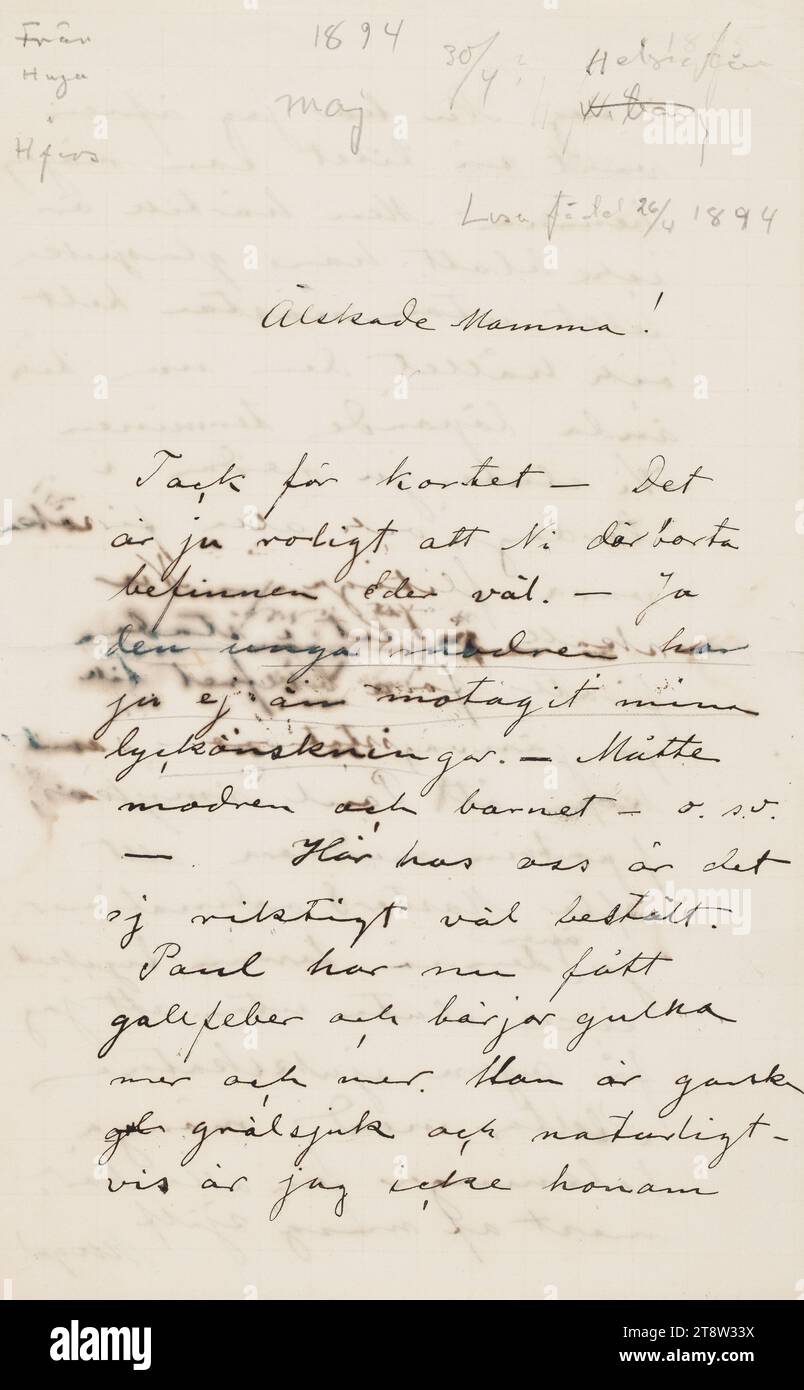 Från 1894 30/4? Helsingfors
Hugo maj Wiborg
i
H fors
Lisa född 26/4 1894
Älskade Mamma!
Tack för kortet – Det
är ju roligt att Ni därborta
befinnen Eder väl. – Ja
den unga modren har
ju ej än motagit mina
lyckönskningar. – Måtte
modren och barnet – o.s.v.
– Här hos oss är det
ej riktigt väl bestält.
Paul har nu fått
gallfeber och börjar gulna
mer och mer. Han är ganska
grälsjuk och naturligt-
vis är jag icke honom
alamy
alamy
Image ID: 2T8W33X
www.alamy.com